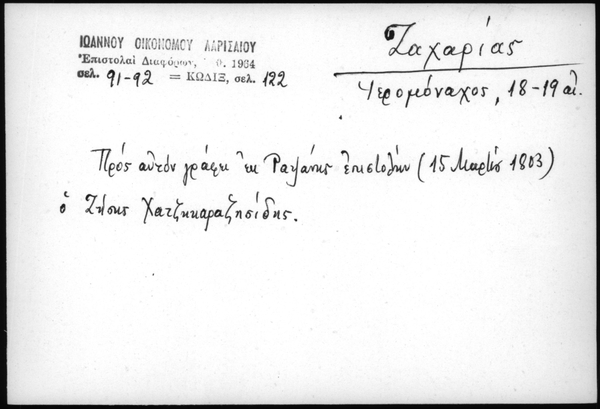 ΙΩΑΝΝΟΥ ΟΙΚΟΝΟΜΟΥ ΛΑΡΙΣΑΙΟΥ
Ἐπιστολαὶ Διαφόρων, 1964
σελ. 91-92 = ΚΩΔΙΞ, σελ. 122
Ζαχαρίας
Ἱερομόναχος, 18-19 αἰ.
Πρὸς αὐτὸν γράφει ἐκ Ραψάνης ἐπιστολὴν (15 Μαρτίου 1803)
ὁ Ζήσης